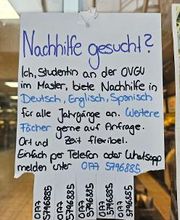 Nachhilfe gesucht?
Ich, Studentin an der OVGU
im Master, biete Nachhilfe in
Deutsch, Englisch, Spanisch
für alle Jahrgänge an. Weitere
Fächer gerne auf Anfrage.
Ort und Zeit flexibel.
Einfach per Telefon oder Whatsapp
melden unter 0177 5796885
0177 5796885
0177 5796885
0177 5796885
0177 5796885